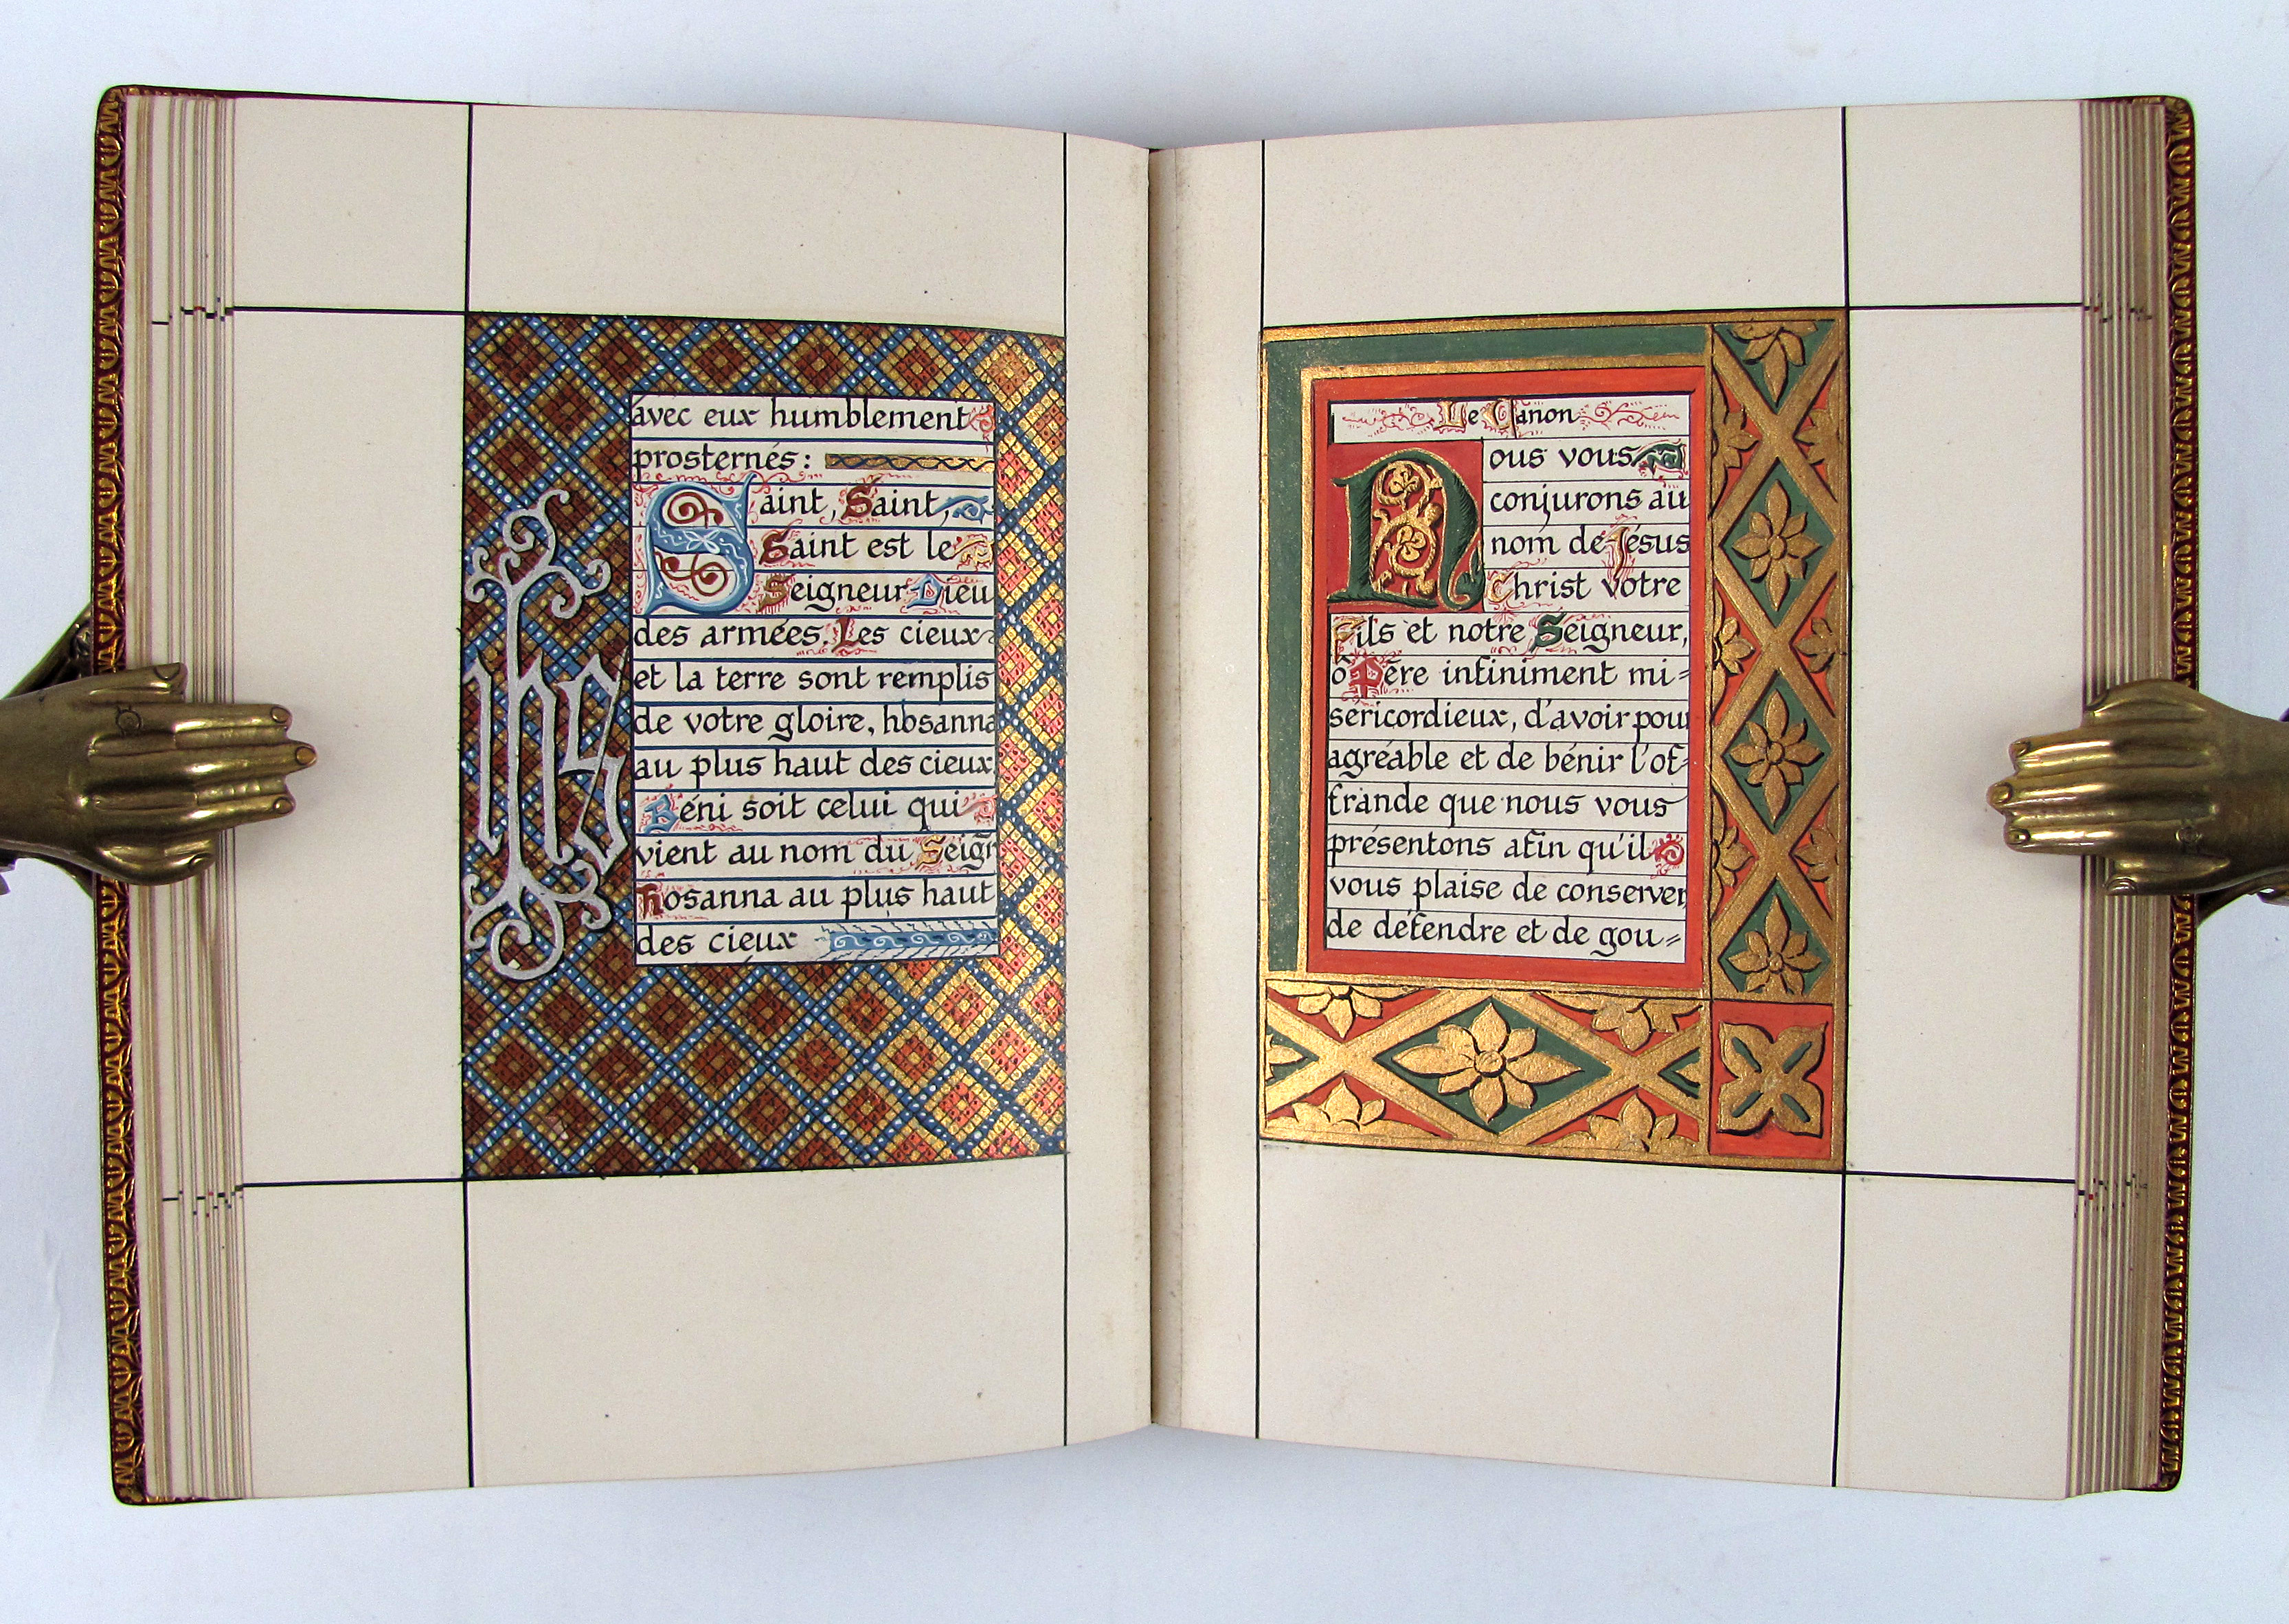 avec eux humblement
prosternés:
Saint, Saint,
Saint est le
Seigneur Dieu
des armées. Les cieux
et la terre sont remplis
de votre gloire, hosanna
au plus haut des cieux.
Béni soit celui qui
vient au nom du Seigr
hosanna au plus haut
des cieux
ihs
Le Canon
Nous vous
conjurons au
nom de Jésus
Christ votre
Fils et notre Seigneur,
ô Père infiniment mi=
séricordieux, d'avoir pour
agréable et de bénir l'of=
frande que nous vous
présentons afin qu'il
vous plaise de conserver
de défendre et de gou=